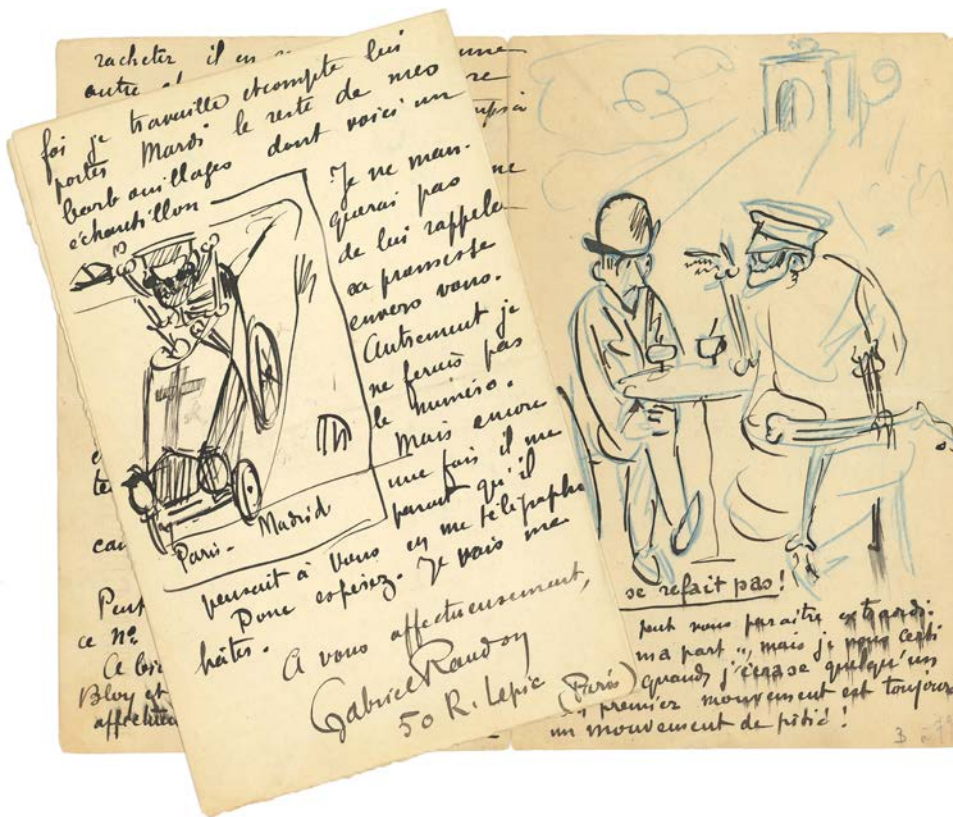 racheter il en
autre
foi je travaille et compte lui
porter Mardi le reste de mes
barbouillages dont voici un
échantillon
Je ne man-
querai pas
de lui rappeler
sa promesse
envers vous.
Autrement je
ne ferais pas
le numéro.
Mais encore
une fois il me
parait qu'il
Paris - Madrid
pensait à vous en me télégraphi
Donc espérez. Je vais me
hâter.
A vous affectueusement,
Gabriel Randon
50 R. Lepic (Paris)
ce nº
Bloy et
se refait pas!
peut vous paraître extraordi-
ma part", mais je vous certi
quand j'écrase quelqu'un
premier mouvement est toujours
un mouvement de pitié!
3